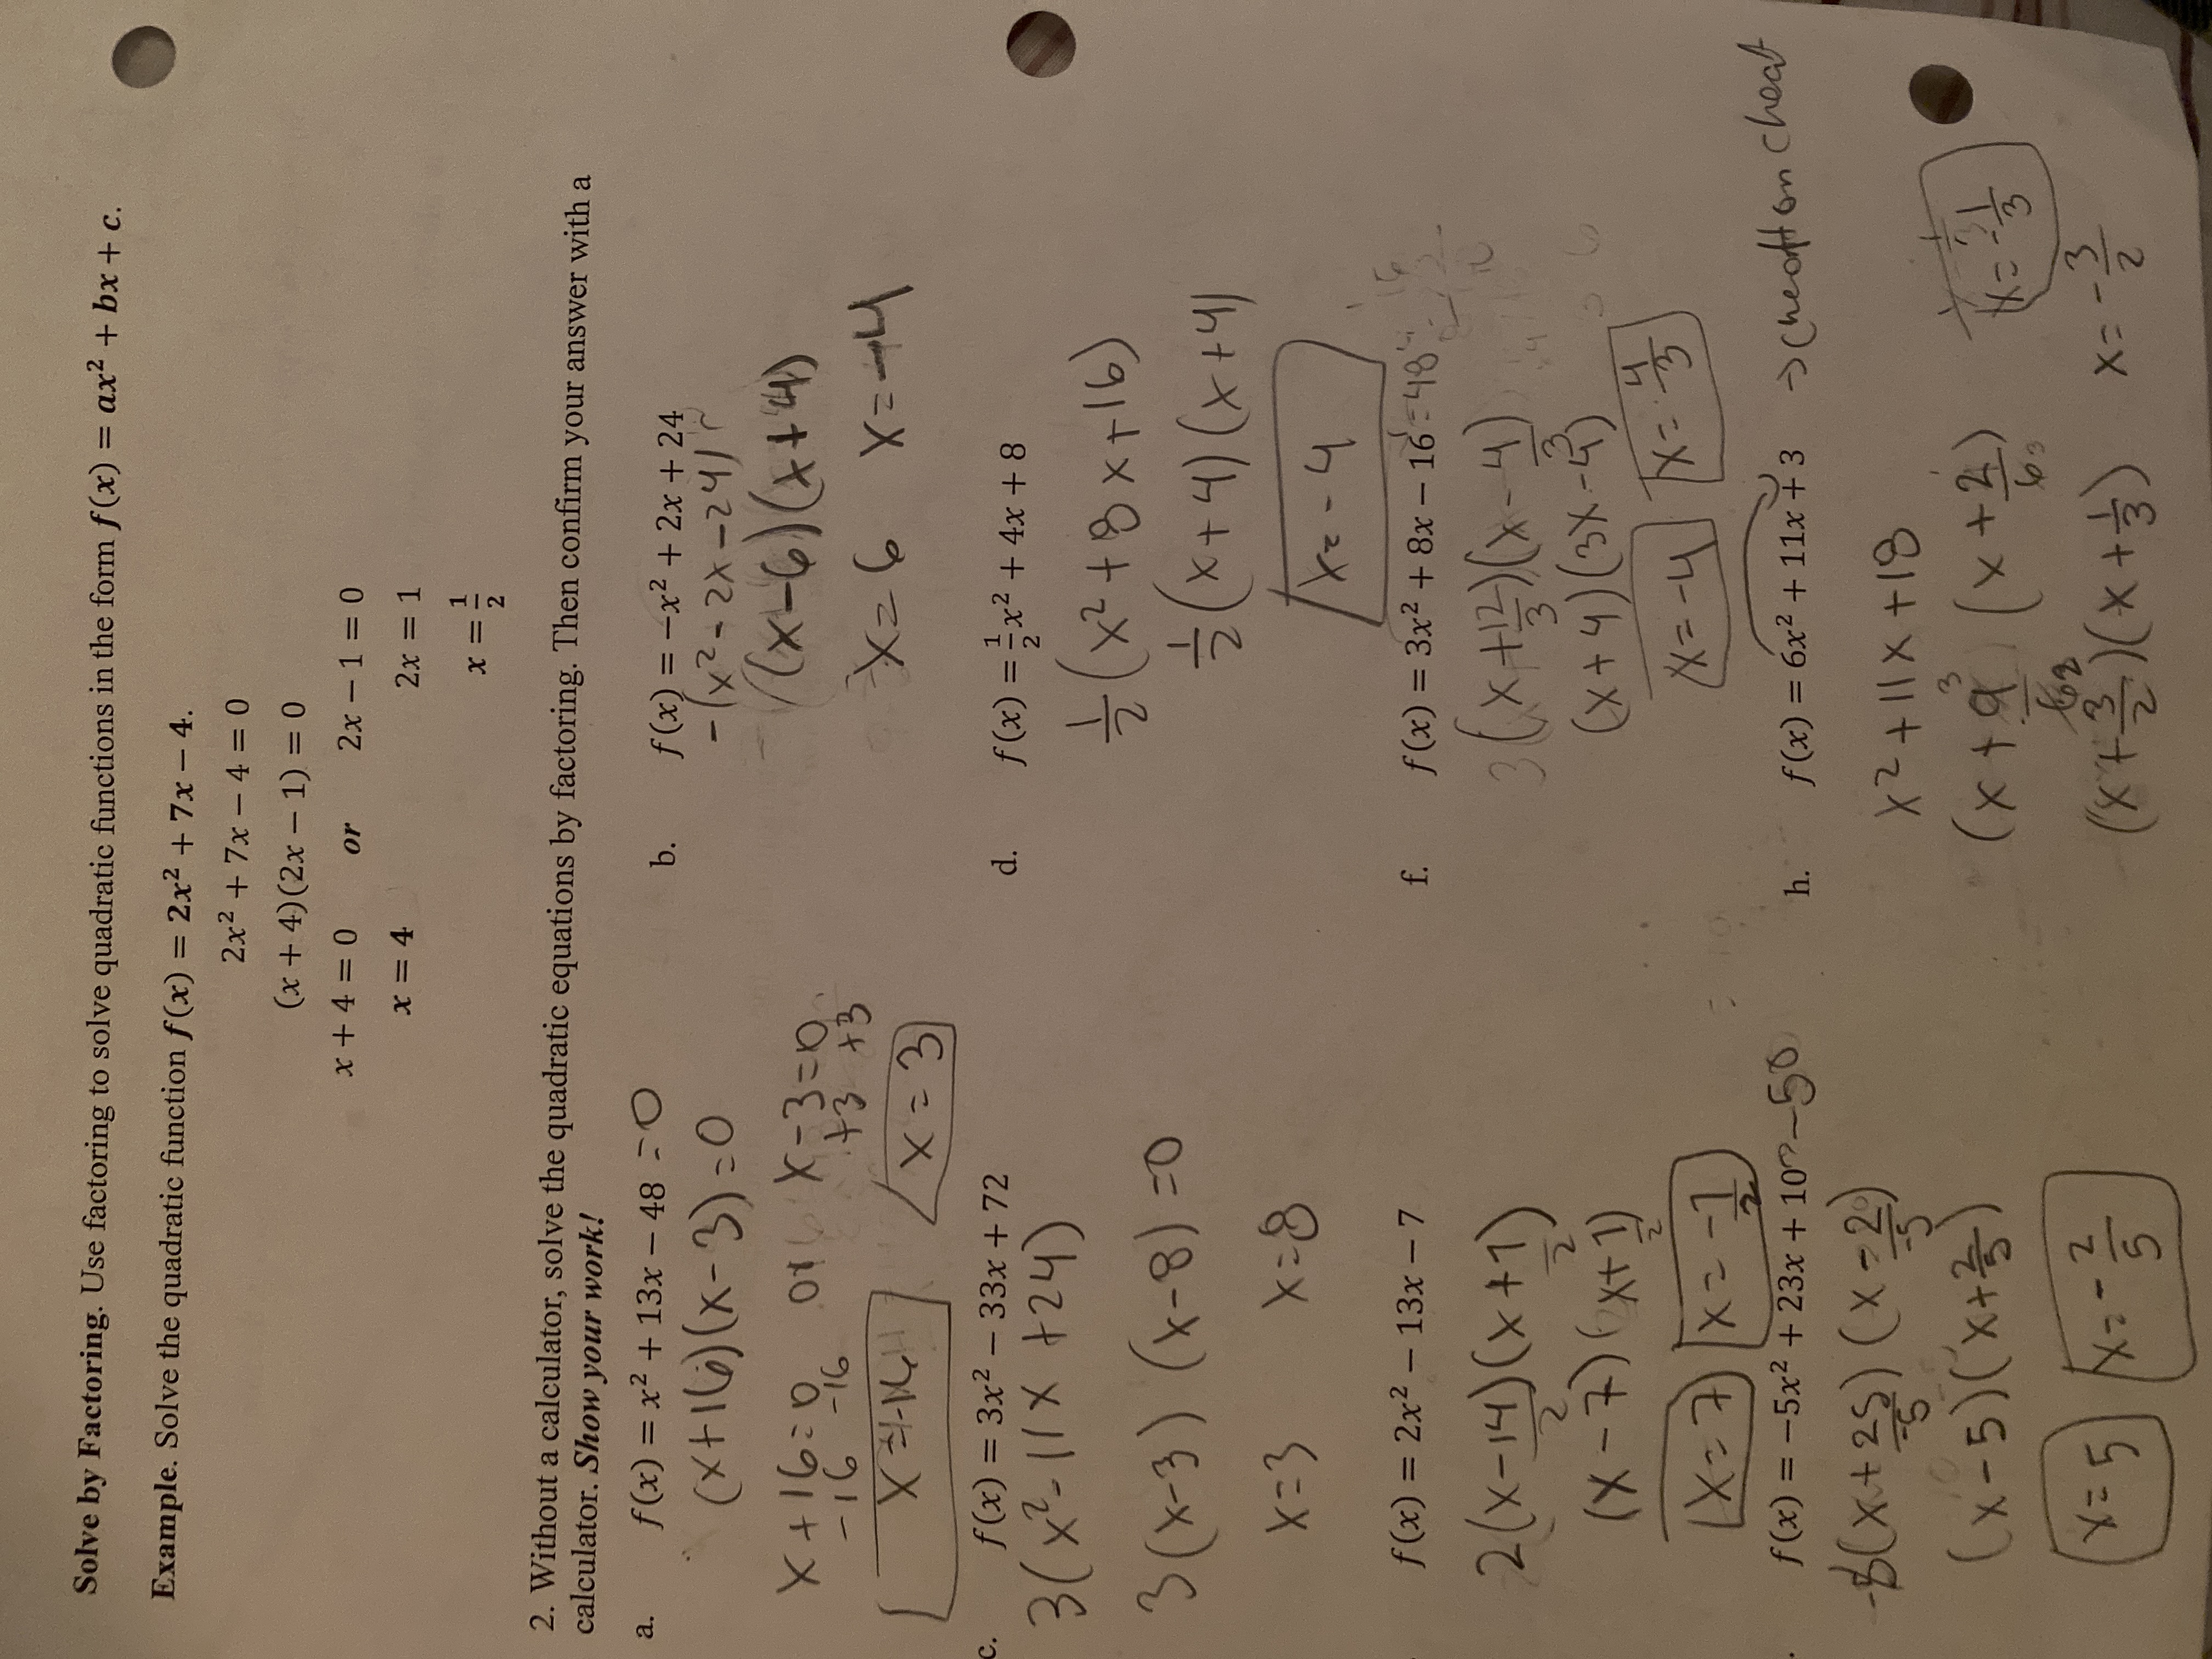 Solve by Factoring. Use factoring to solve quadratic functions in the form f(x) = ax² + bx + c.
Example. Solve the quadratic function f(x) = 2x² + 7x − 4.
2x² + 7x − 4 = 0
(x + 4)(2x − 1) = 0
x + 4 = 0 or 2x − 1 = 0
x = 4 2x = 1
x = 1/2
2. Without a calculator, solve the quadratic equations by factoring. Then confirm your answer with a
calculator. Show your work!
a. f(x) = x² + 13x − 48 = 0
(x+16)(x-3)=0
x+16=0 or x-3=0
-16 -16 +3 +3
x=-16 x=3
b. f(x) = −x² + 2x + 24
-(x²-2x-24)
(x-6)(x+4)
x=6 x=-4
c. f(x) = 3x² − 33x + 72
3(x²-11x+24)
3(x-3)(x-8)=0
x=3 x=8
d. f(x) = 1/2 x² + 4x + 8
1/2(x²+8x+16)
1/2(x+4)(x+4)
x=-4
f(x) = 2x² − 13x − 7
2(x-14/2)(x+1/2)
(x-7)(x+1/2)
x=7 x=-1/2
f. f(x) = 3x² + 8x − 16 =48
3(x+12/3)(x-4/3)
(x+4)(3x-4)
x=-4 x=4/3
f(x) = −5x² + 23x + 10 -50
-5(x+25/-5)(x-2/-5)
(x-5)(x+2/5)
x=5 x=-2/5
h. f(x) = 6x² + 11x + 3 → cheat
x²+11x+18
(x+9/6)(x+2/6)
(x+3/2)(x+1/3)
x=-1/3
x=-3/2